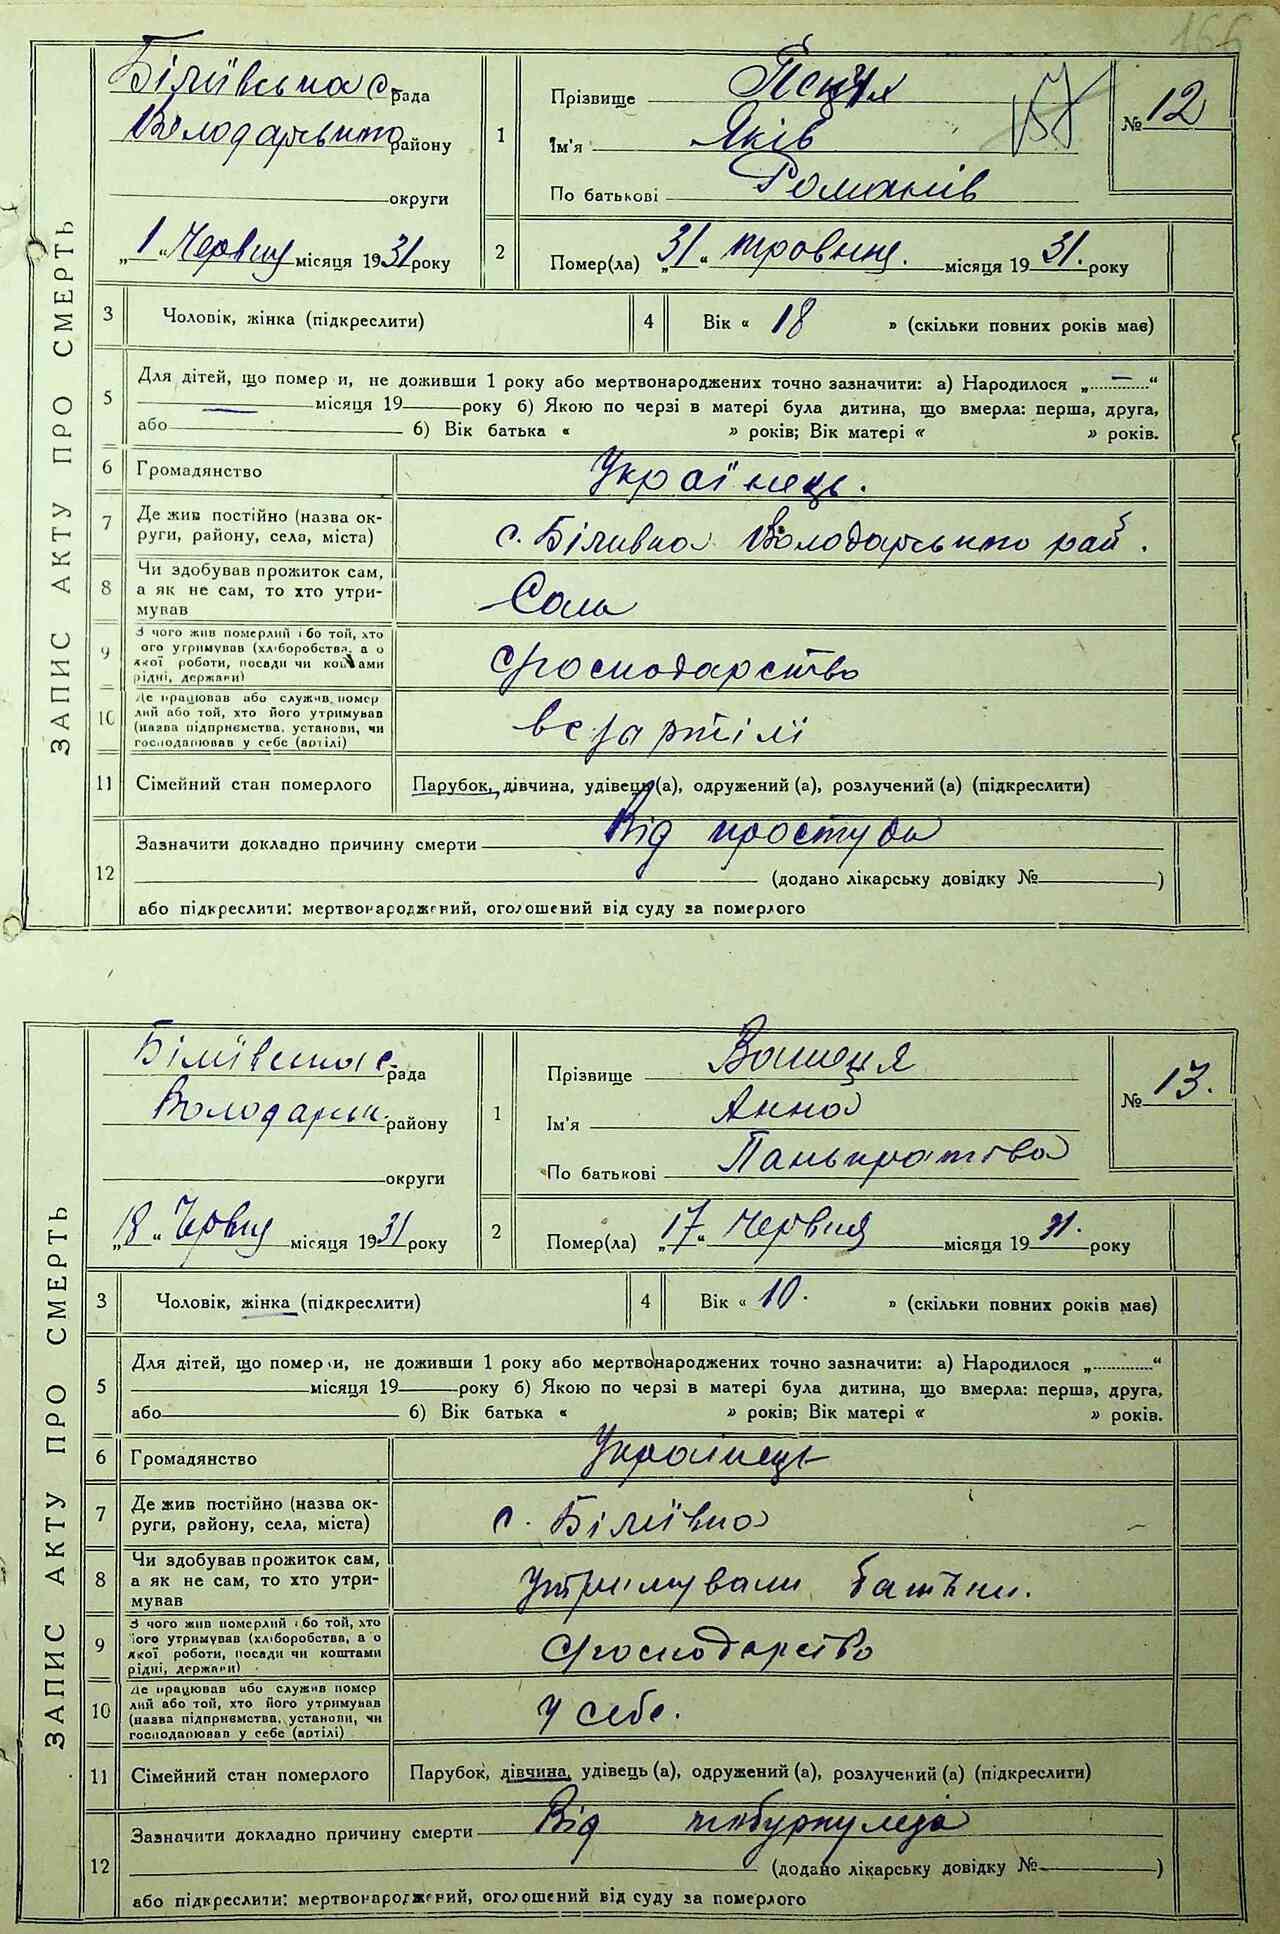 166
ЗАПИС АКТУ ПРО СМЕРТЬ
Біліївська с. рада
Володарського району
округи
„1“ Червня місяця 1931 року
1
Прізвище
Ім'я Яків
По батькові Романів
№ 12
2
Помер(ла) „31“ травня. місяця 1931. року
3 Чоловік, жінка (підкреслити)
4 Вік « 18 » (скільки повних років має)
5 Для дітей, що помер и, не доживши 1 року або мертвонароджених точно зазначити: а) Народилося „ — “
— місяця 19 року б) Якою по черзі в матері була дитина, що вмерла: перша, друга,
або б) Вік батька « » років; Вік матері « » років.
6 Громадянство Українець.
7 Де жив постійно (назва ок-
руги, району, села, міста) с. Біліївка Володарського рай.
8 Чи здобував прожиток сам,
а як не сам, то хто утри-
мував Сам
9 З чого жив померлий або той, хто
його утримував (хліборобства, а о
якої роботи, посади чи коштами
рідні, держави) Господарство
10 Де працював або служив помер
лий або той, хто його утримував
(назва підприємства, установи, чи
господарював у себе (артілі) артілі
11 Сімейний стан померлого Парубок, дівчина, удівець(а), одружений (а), розлучений (а) (підкреслити)
12 Зазначити докладно причину смерти Від простуди
(додано лікарську довідку № )
або підкреслити: мертвонароджений, оголошений від суду за померлого
ЗАПИС АКТУ ПРО СМЕРТЬ
Біліївська с. рада
Володарськ. району
округи
„18“ Червня місяця 1931 року
1
Прізвище Ващеця
Ім'я Анна
По батькові Панькратова
№ 13.
2
Помер(ла) „17“ Червня місяця 1931. року
3 Чоловік, жінка (підкреслити)
4 Вік « 10. » (скільки повних років має)
5 Для дітей, що помер и, не доживши 1 року або мертвонароджених точно зазначити: а) Народилося „ “
місяця 19 року б) Якою по черзі в матері була дитина, що вмерла: перша, друга,
або б) Вік батька « » років; Вік матері « » років.
6 Громадянство Українець
7 Де жив постійно (назва ок-
руги, району, села, міста) с. Біліївка
8 Чи здобував прожиток сам,
а як не сам, то хто утри-
мував Утримували батьки.
9 З чого жив померлий або той, хто
його утримував (хліборобства, а о
якої роботи, посади чи коштами
рідні, держави) Господарство
10 Де працював або служив помер
лий або той, хто його утримував
(назва підприємства, установи, чи
господарював у себе (артілі) У себе.
11 Сімейний стан померлого Парубок, дівчина, удівець (а), одружений (а), розлучений (а) (підкреслити)
12 Зазначити докладно причину смерти Від тюбуркульоза
(додано лікарську довідку № )
або підкреслити: мертвонароджений, оголошений від суду за померлого